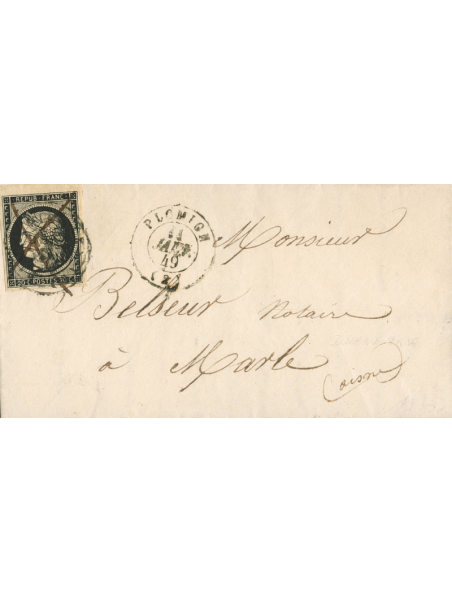 REPUB. FRANC.
20 C POSTES 20 C
PLOMION
11
JANV.
49
(2)
Monsieur
Belseur Notaire
à Marle
(aisne)